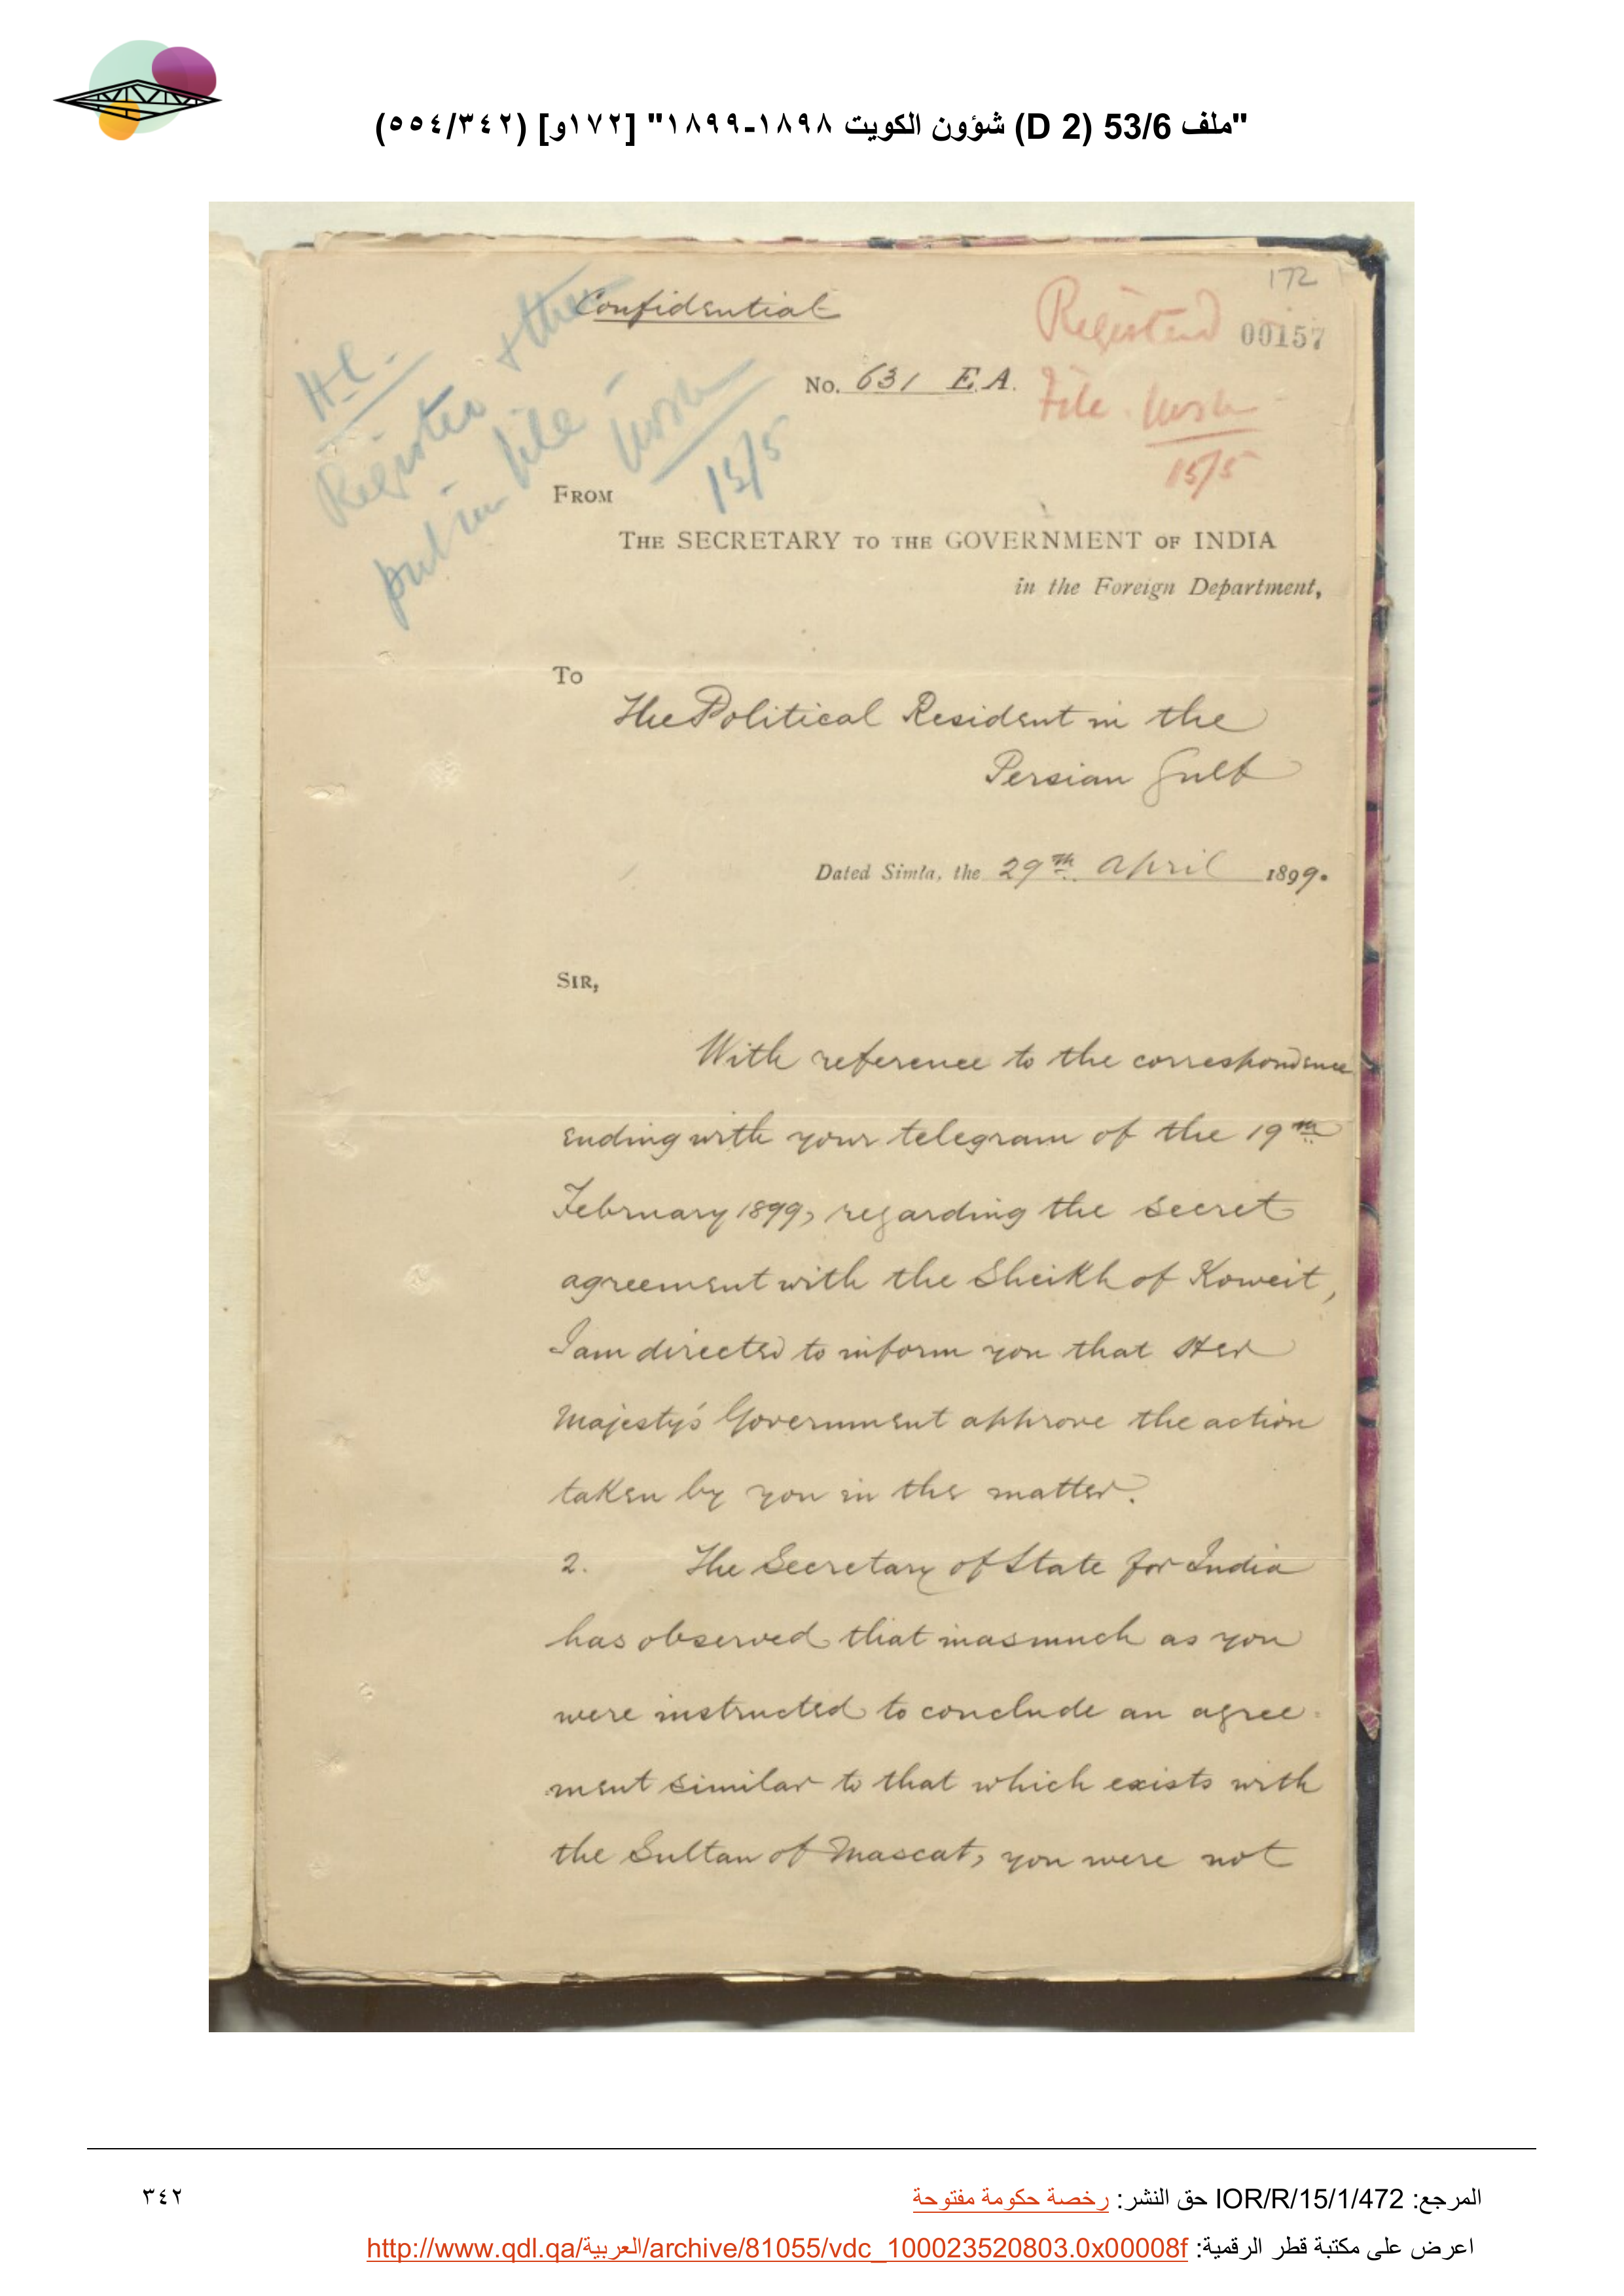 "ملف 53/6 (D 2) شؤون الكويت ١٨٩٨-١٨٩٩" [١٧٢و] (٥٥٤/٣٤٢)
172
Confidential
Registered 00157
No. 631 E.A.
File.
15/5
H.C.
Register & then
put in file
15/5
FROM
THE SECRETARY TO THE GOVERNMENT OF INDIA
in the Foreign Department,
To
The Political Resident in the
Persian Gulf
Dated Simla, the 29th April 1899.
SIR,
With reference to the correspondence
ending with your telegram of the 19th
February 1899, regarding the secret
agreement with the Sheikh of Koweit,
I am directed to inform you that Her
Majesty's Government approve the action
taken by you in the matter.
2. The Secretary of State for India
has observed that inasmuch as you
were instructed to conclude an agree-
ment similar to that which exists with
the Sultan of Mascat, you were not
المرجع: IOR/R/15/1/472 حق النشر: رخصة حكومة مفتوحة
٣٤٢
اعرض على مكتبة قطر الرقمية: http://www.qdl.qa/العربية/archive/81055/vdc_100023520803.0x00008f